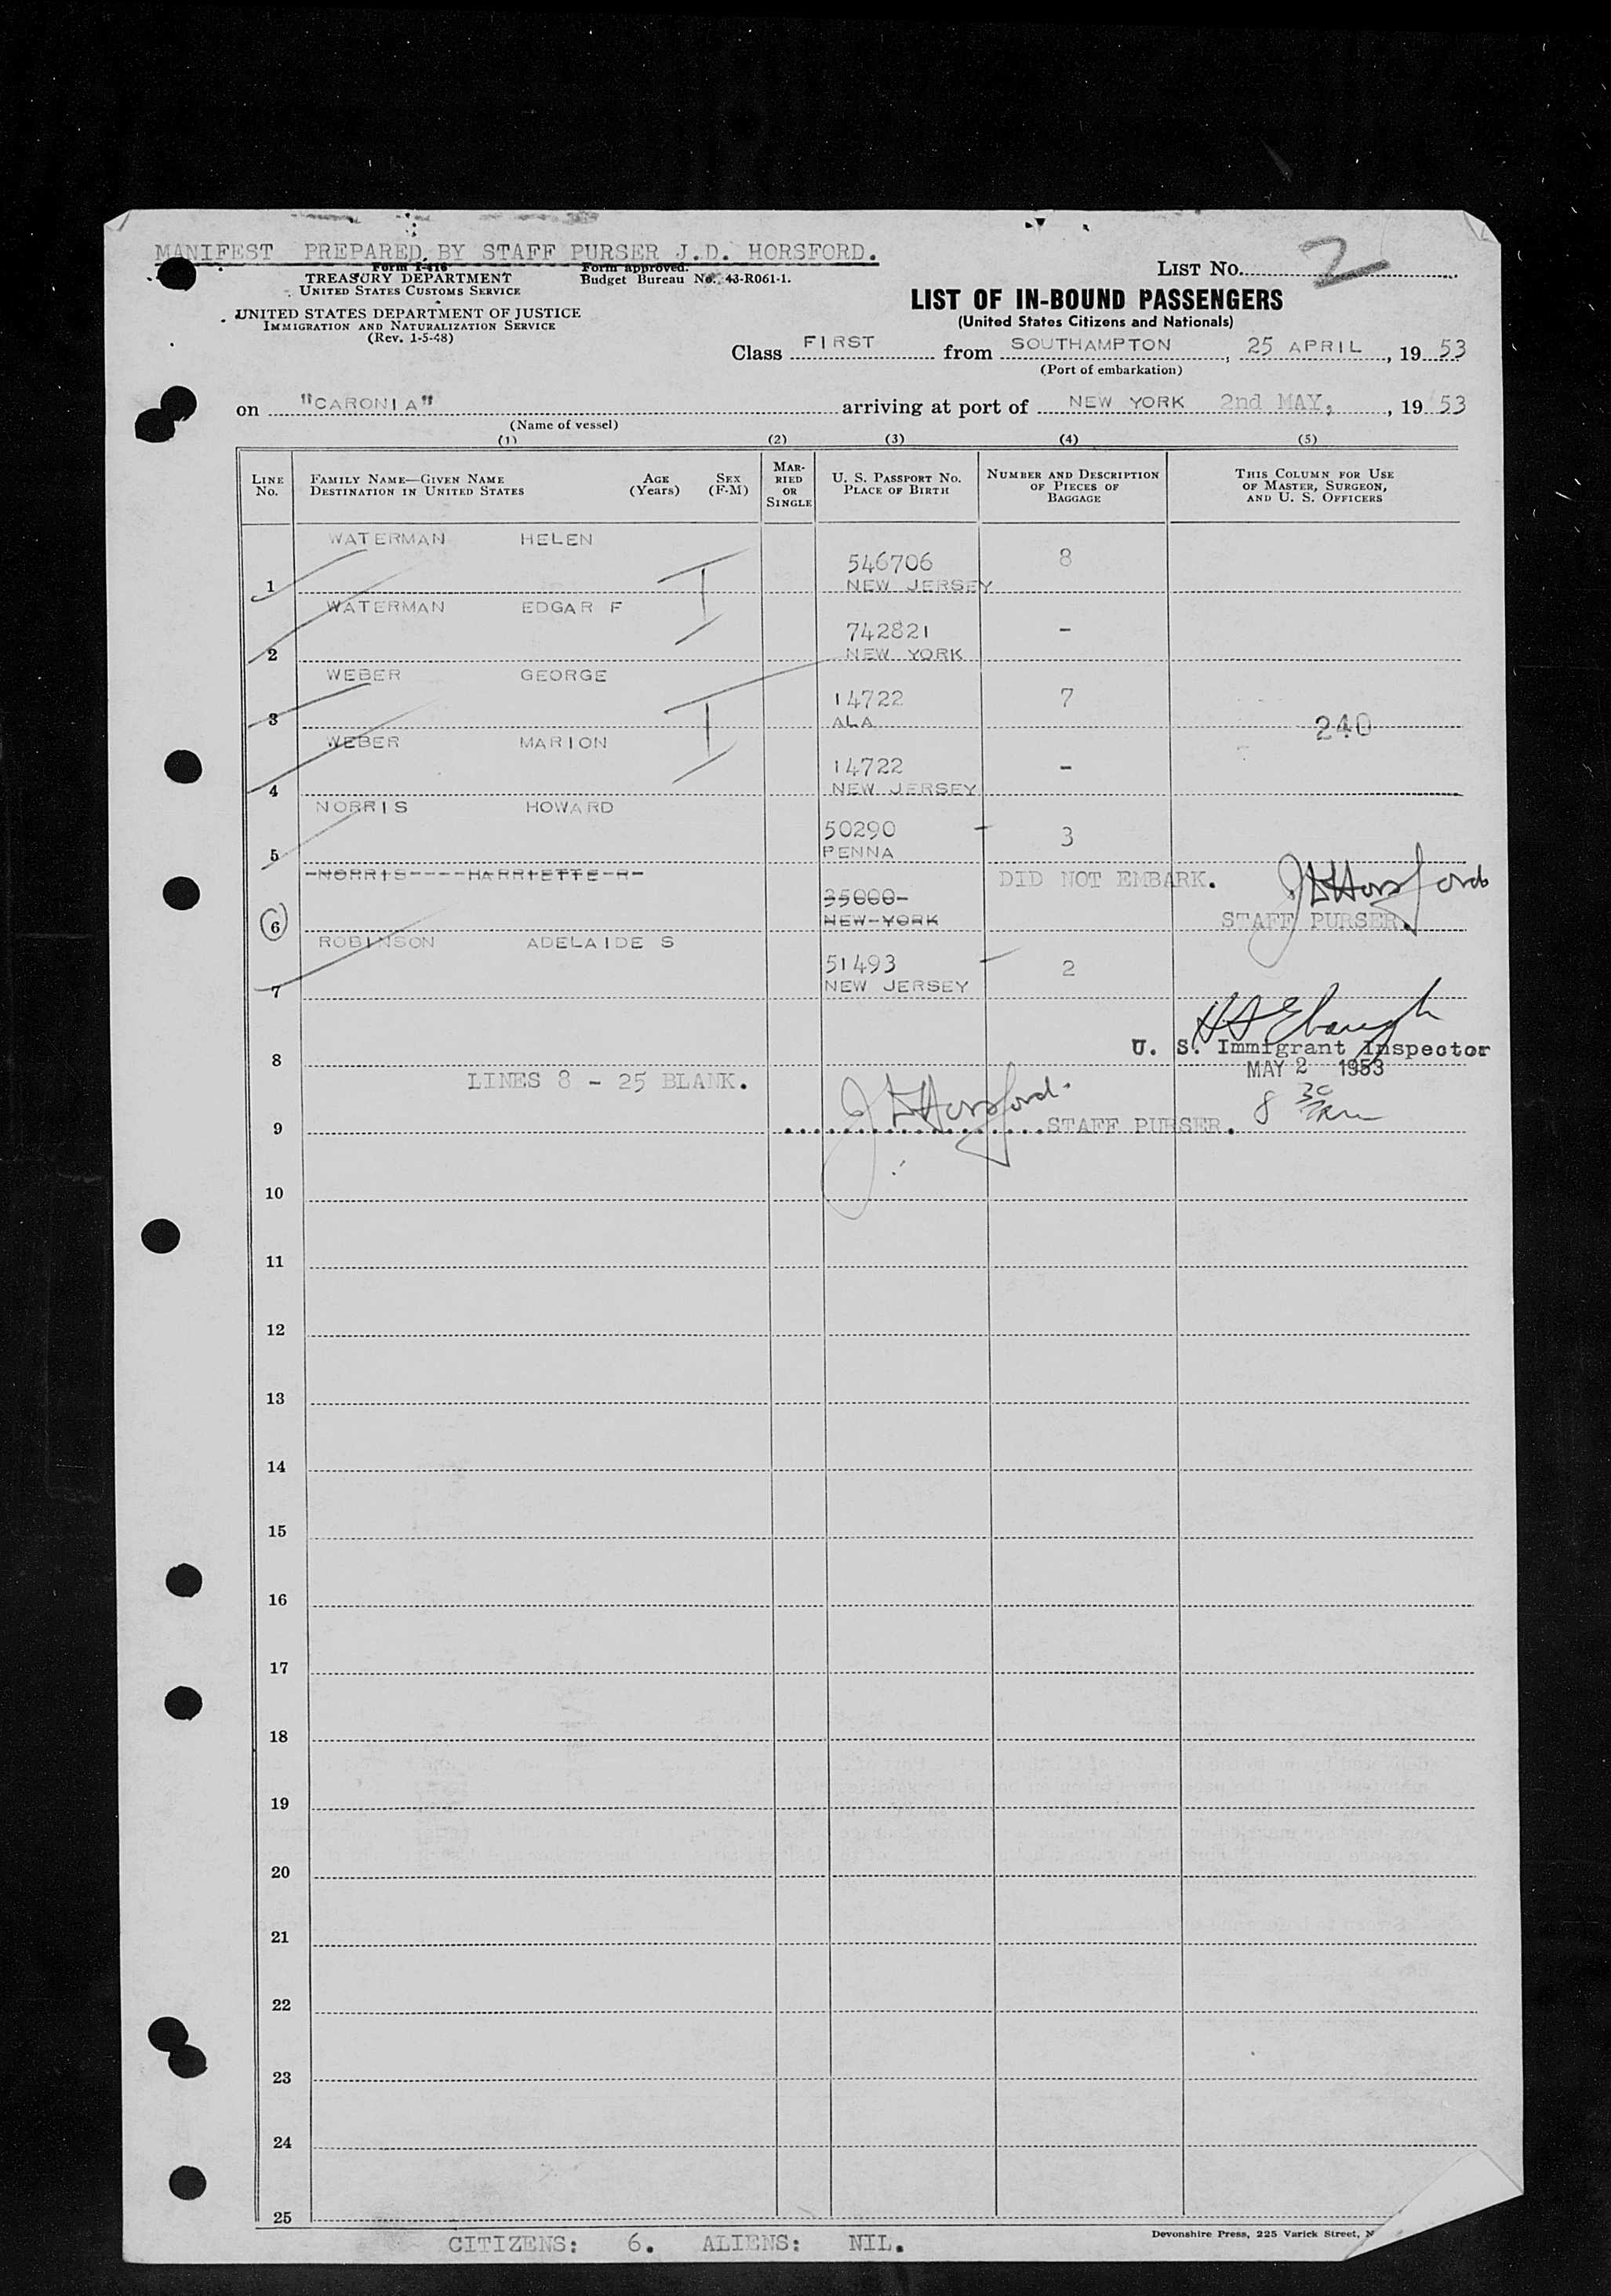 MANIFEST PREPARED BY STAFF PURSER J.D. HORSFORD.
Form I-418
TREASURY DEPARTMENT
UNITED STATES CUSTOMS SERVICE
Form approved.
Budget Bureau No. 43-R061-1.
LIST No. 2
UNITED STATES DEPARTMENT OF JUSTICE
IMMIGRATION AND NATURALIZATION SERVICE
(Rev. 1-5-48)
LIST OF IN-BOUND PASSENGERS
(United States Citizens and Nationals)
Class FIRST from SOUTHAMPTON, 25 APRIL, 19 53
(Port of embarkation)
on "CARONIA" arriving at port of NEW YORK 2nd MAY, , 19 53
(Name of vessel)
(1) (2) (3) (4) (5)
LINE No. FAMILY NAME—GIVEN NAME DESTINATION IN UNITED STATES AGE (Years) SEX (F-M) MARRIED OR SINGLE U. S. PASSPORT No. PLACE OF BIRTH NUMBER AND DESCRIPTION OF PIECES OF BAGGAGE THIS COLUMN FOR USE OF MASTER, SURGEON, AND U. S. OFFICERS
WATERMAN HELEN
546706 8
1 NEW JERSEY
WATERMAN EDGAR F
742821 -
2 NEW YORK
WEBER GEORGE
14722 7
3 ALA 240
WEBER MARION
14722 -
4 NEW JERSEY
NORRIS HOWARD
50290 - 3
5 PENNA
NORRIS HARRIETTE R DID NOT EMBARK. J D Horsford
35000
6 NEW YORK STAFF PURSER.
ROBINSON ADELAIDE S
51493 - 2
7 NEW JERSEY
U. S. Immigrant Inspector
8 MAY 2 1953
LINES 8 - 25 BLANK. J D Horsford. 8 30 am
9 STAFF PURSER.
10
11
12
13
14
15
16
17
18
19
20
21
22
23
24
25
Devonshire Press, 225 Varick Street, N
CITIZENS: 6. ALIENS: NIL.